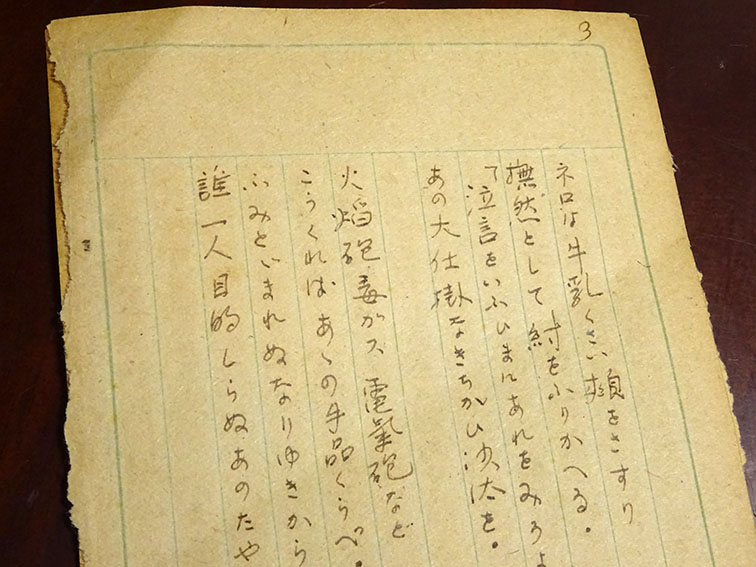 3
ネロは牛乳くさい頬をさすり
撫然として紂をふりかへる。
「泣言をいふひまにあれをみろよ
あの大仕掛なきちがひ沙汰を。
火焔砲、毒ガス、電氣砲など
こうくればあゝの手品くらべ。
ふみとゞまれぬなりゆきから
誰一人目的しらぬあのたや